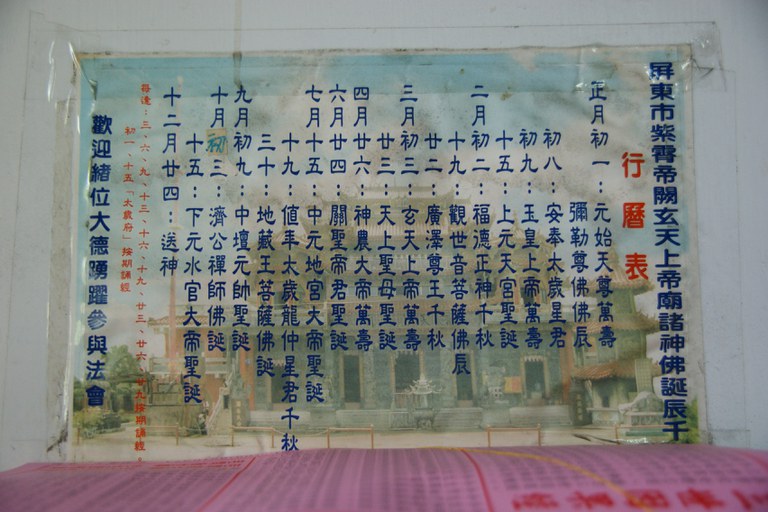 屏東市紫霄帝闕玄天上帝廟諸神佛誕辰千
行曆表
正月初一：元始天尊萬壽
彌勒尊佛佛辰
初八：安奉太歲星君
初九：玉皇上帝萬壽
十五：上元天宮聖誕
二月初二：福德正神千秋
十九：觀世音菩薩佛辰
廿二：廣澤尊王千秋
三月初三：玄天上帝萬壽
廿三：天上聖母聖誕
四月廿六：神農大帝萬壽
六月廿四：關聖帝君聖誕
七月十五：中元地宮大帝聖誕
十九：值年太歲龍仲星君千秋
三十：地藏王菩薩佛誕
九月初九：中壇元帥聖誕
十月初三：濟公禪師佛誕
十五：下元水官大帝聖誕
十二月廿四：送神
務逢：三、六、九、十三、十六、十九、廿三、廿六、廿九按期誦經，
初一、十五「太歲府」按期誦經
歡迎緒位大德踴躍參與法會